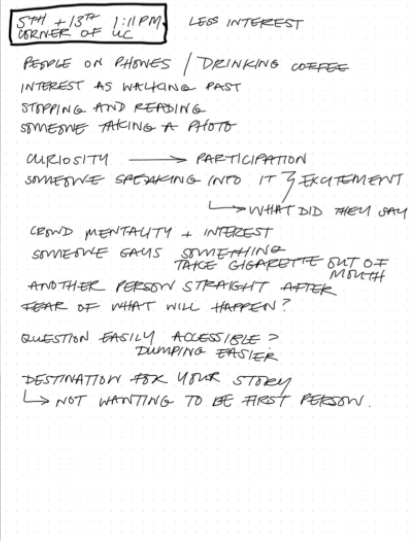 5TH + 13TH 1:11 PM. LESS INTEREST
CORNER OF UC
PEOPLE ON PHONES / DRINKING COFFEE
INTEREST AS WALKING PAST
STOPPING AND READING
SOMEONE TAKING A PHOTO
CURIOSITY → PARTICIPATION
SOMEONE SPEAKING INTO IT } EXCITEMENT
↳ WHAT DID THEY SAY
CROWD MENTALITY + INTEREST
SOMEONE SAYS SOMETHING
TAKE CIGARETTE OUT OF
MOUTH
ANOTHER PERSON STRAIGHT AFTER
FEAR OF WHAT WILL HAPPEN?
QUESTION EASILY ACCESSIBLE >
DUMPING EASIER
DESTINATION FOR YOUR STORY
↳ NOT WANTING TO BE FIRST PERSON.